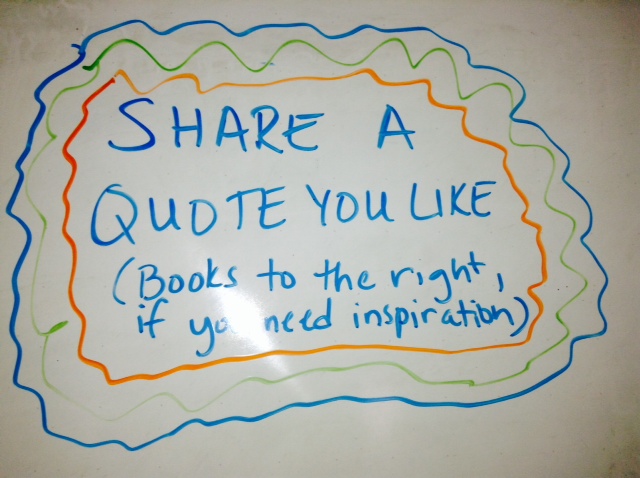 SHARE A
QUOTE YOU LIKE
(Books to the right,
if you need inspiration)